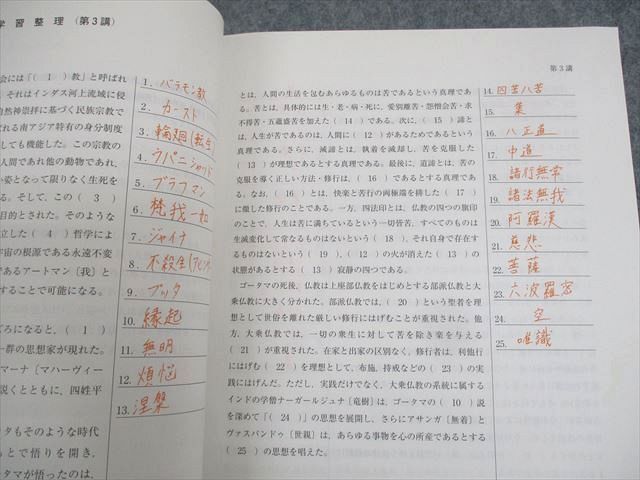 学習整理（第3講）
会には「（ 1 ）教」と呼ばれ
それはインダス河上流域に侵
自然神崇拝に基づく民族宗教で
れる南アジア特有の身分制度
しても機能した。この宗教の
人間であれ他の動物であれ，
い姿となって限りなく生死を
る。そして，この（ 3 ）
目的とされた。そのような
立した（ 4 ）哲学によ
宇宙の根源である永遠不変
であるアートマン［我］と
とすることで可能になる。
ごろになると，（ 1 ）
一群の思想家が現れた。
マーナ［マハーヴィー
説くとともに，四姓平
タもそのような時代
もとで悟りを開き，
タマが悟ったのは，
1. バラモン教
2. カースト
3. 輪廻(転生)
4. ウパニシャッド
5. ブラフマン
6. 梵我一如
7. ジャイナ
8. 不殺生
9. ブッダ
10. 縁起
11. 無明
12. 煩悩
13. 涅槃
第3講
とは，人間の生活を包むあらゆるものは苦であるという真理であ
る。苦とは，具体的には生・老・病・死に，愛別離苦・怨憎会苦・求
不得苦・五蘊盛苦を加えた（ 14 ）である。次に，（ 15 ）諦と
は，人生が苦であるのは，人間に（ 12 ）があるためであるという
真理である。さらに，滅諦とは，執着を滅却し，苦を克服した
（ 13 ）が理想であるとする真理である。最後に，道諦とは，苦の
克服を導く正しい方法・修行は，（ 16 ）であるとする真理であ
る。なお，（ 16 ）とは，快楽と苦行の両極端を排した（ 17 ）
に徹した修行のことである。一方，四法印とは，仏教の四つの旗印
のことで，人生は苦に満ちているという一切皆苦，すべてのものは
生滅変化して常なるものはないという（ 18 ），それ自身で存在す
るものはないという（ 19 ），（ 12 ）の火が消えた（ 13 ）の
状態があるとする（ 13 ）寂静の四つである。
ゴータマの死後，仏教は上座部仏教をはじめとする部派仏教と大
乗仏教に大きく分かれた。部派仏教では，（ 20 ）という聖者を理
想として世俗を離れた厳しい修行にはげむことが重視された。他
方，大乗仏教では，一切の衆生に対して苦を除き楽を与える
（ 21 ）が重視された。在家と出家の区別なく，修行者は，利他行
にはげむ（ 22 ）を理想として，布施，持戒などの（ 23 ）の実
践にはげんだ。ただし，実践だけでなく，大乗仏教の系統に属する
インドの学僧ナーガールジュナ［竜樹］は，ゴータマの（ 10 ）説
を深めて「（ 24 ）」の思想を展開し，さらにアサンガ［無着］と
ヴァスバンドゥ［世親］は，あらゆる事物を心の所産であるとする
（ 25 ）の思想を唱えた。
14. 四苦八苦
15. 集
16. 八正道
17. 中道
18. 諸行無常
19. 諸法無我
20. 阿羅漢
21. 慈悲
22. 菩薩
23. 六波羅蜜
24. 空
25. 唯識